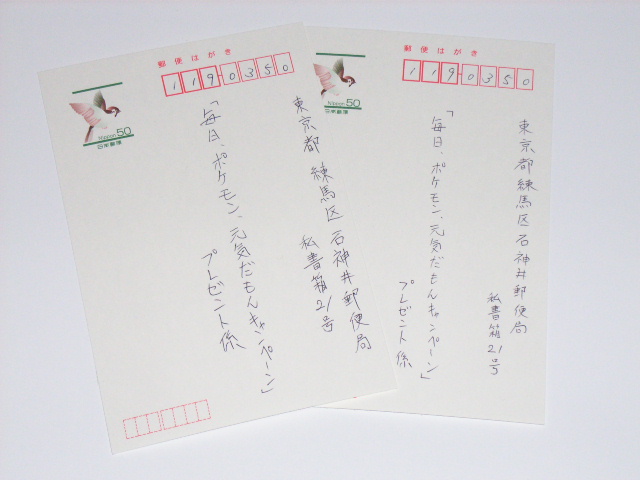 郵便はがき
119-0350
Nippon 50
日本郵便
東京都練馬区石神井郵便局
私書箱21号
「毎日、ポケモン、元気だもんキャンペーン」
プレゼント係
郵便はがき
119-0350
Nippon 50
日本郵便
東京都練馬区石神井郵便局
私書箱21号
「毎日、ポケモン、元気だもんキャンペーン」
プレゼント係